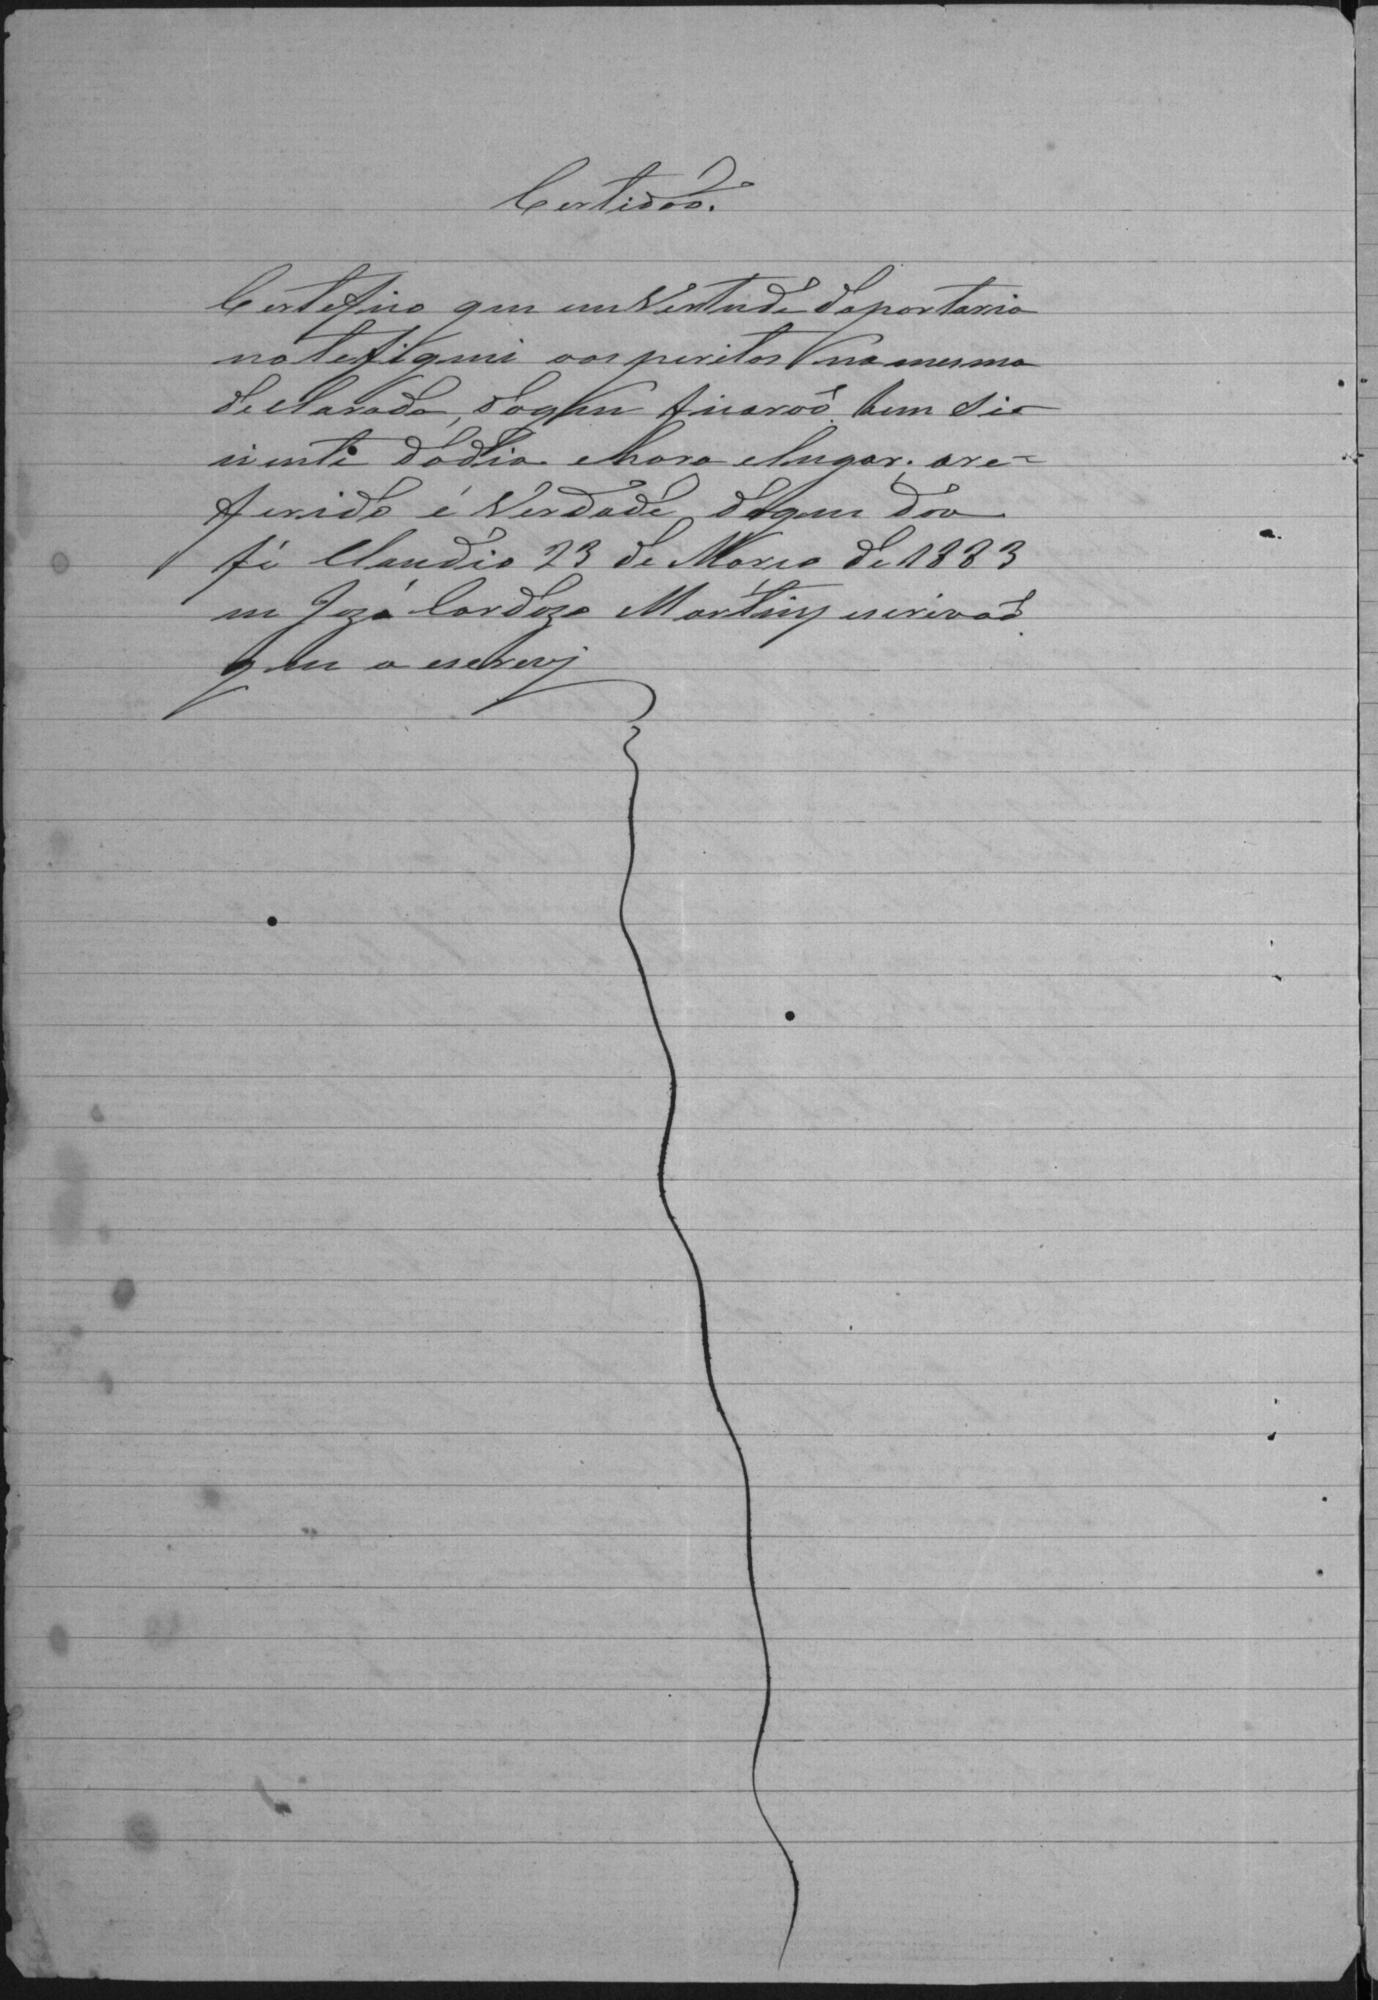 Certidaõ.
Certefico que em Vertude da portaria
notefiquei aos peritos na mesma
declarada, do que ficaraõ bem sci
ciente do dia e hora e lugar; o re=
ferido é Verdade do que dou
fé Claudio 23 de Março de 1883
eu José Cardozo Martins escrivaõ
que o escrevj